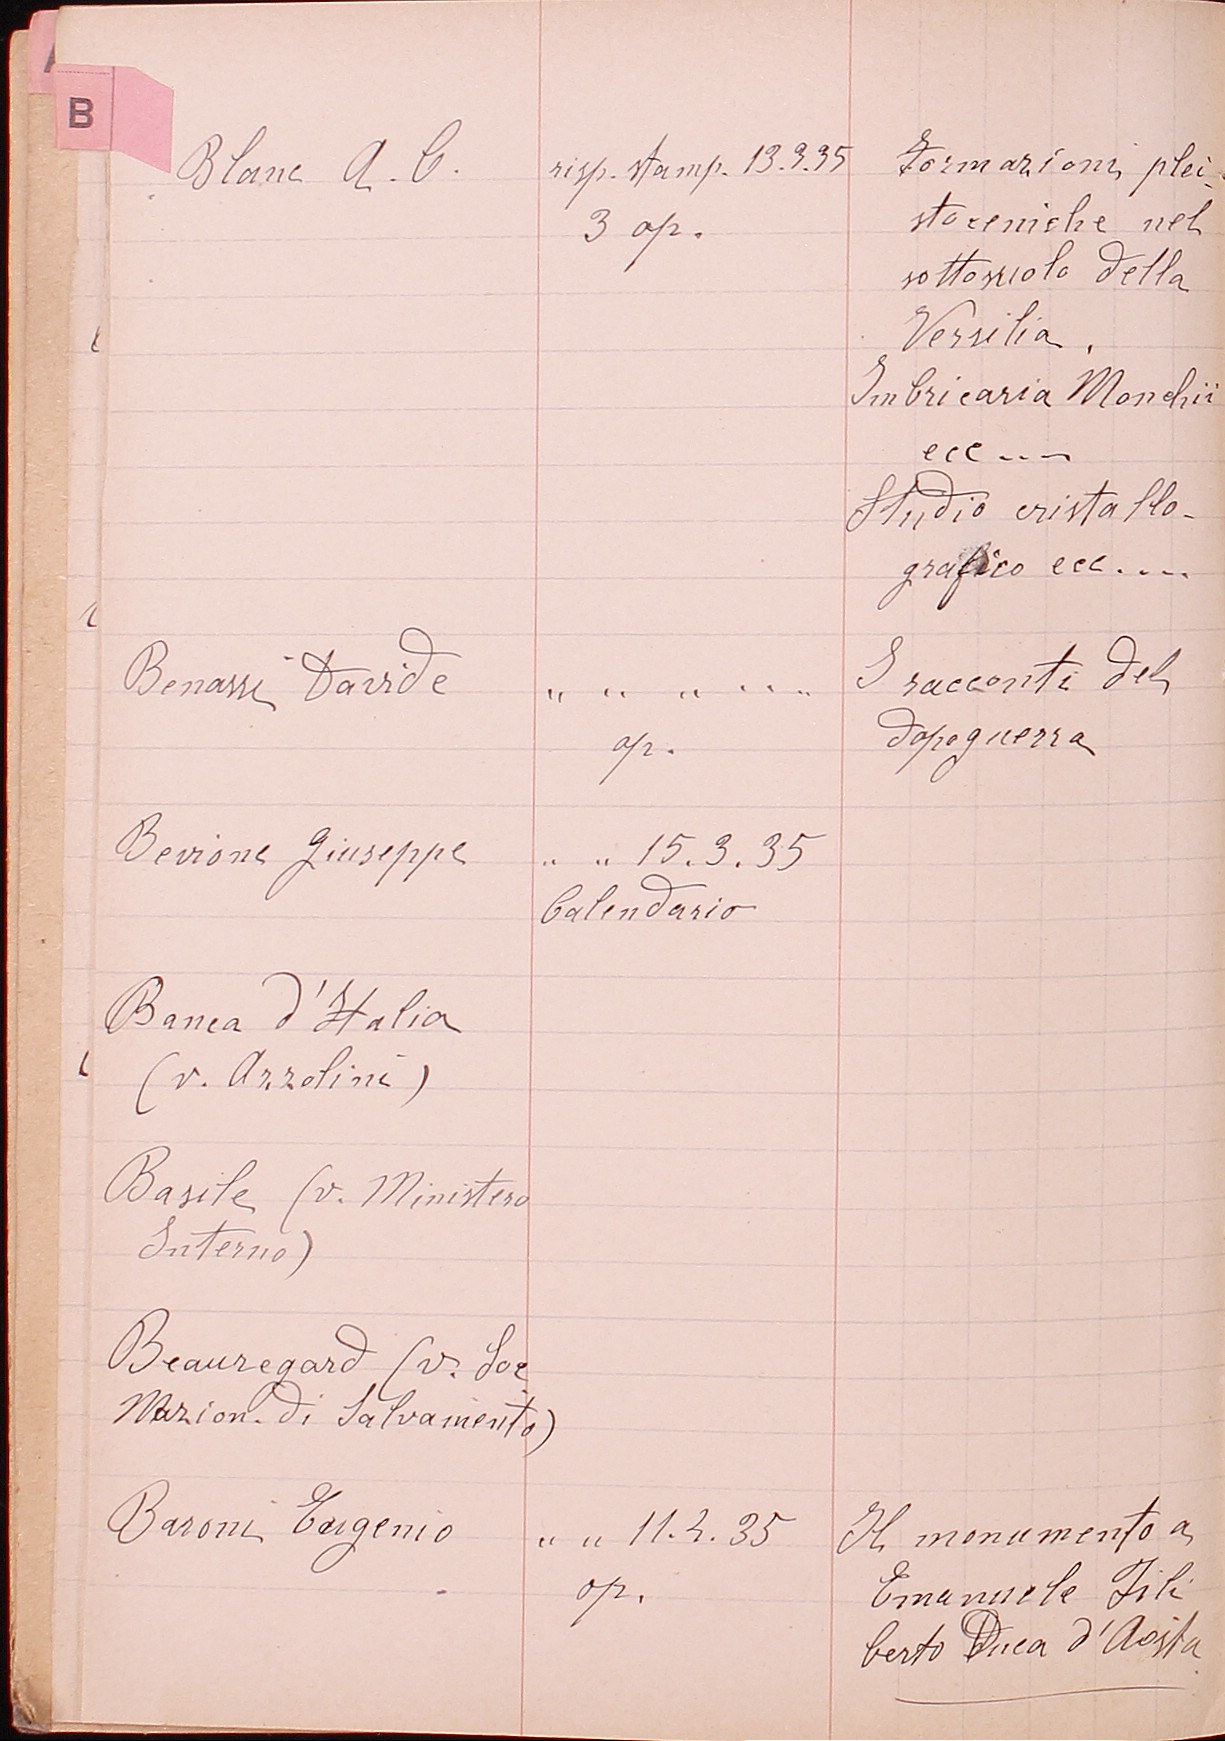 B
Blanc A. C. risp. stamp. 13.3.35 Formazioni plei-
3 op. stoceniche nel
sottosuolo della
Versilia.
Imbricaria Monchii
ecc ...
Studio cristallo-
grafico ecc....
Benassi Davide " " " " " I racconti del
op. dopoguerra
Bevione Giuseppe " " 15.3.35
Calendario
Banca d'Italia
(v. Azzolini)
Basile (v. Ministero
Interno)
Beauregard (v. Soc
Nazion. di Salvamento)
Baroni Eugenio " " 11.2.35 Il monumento a
op. Emanuele Fili
berto Duca d'Aosta